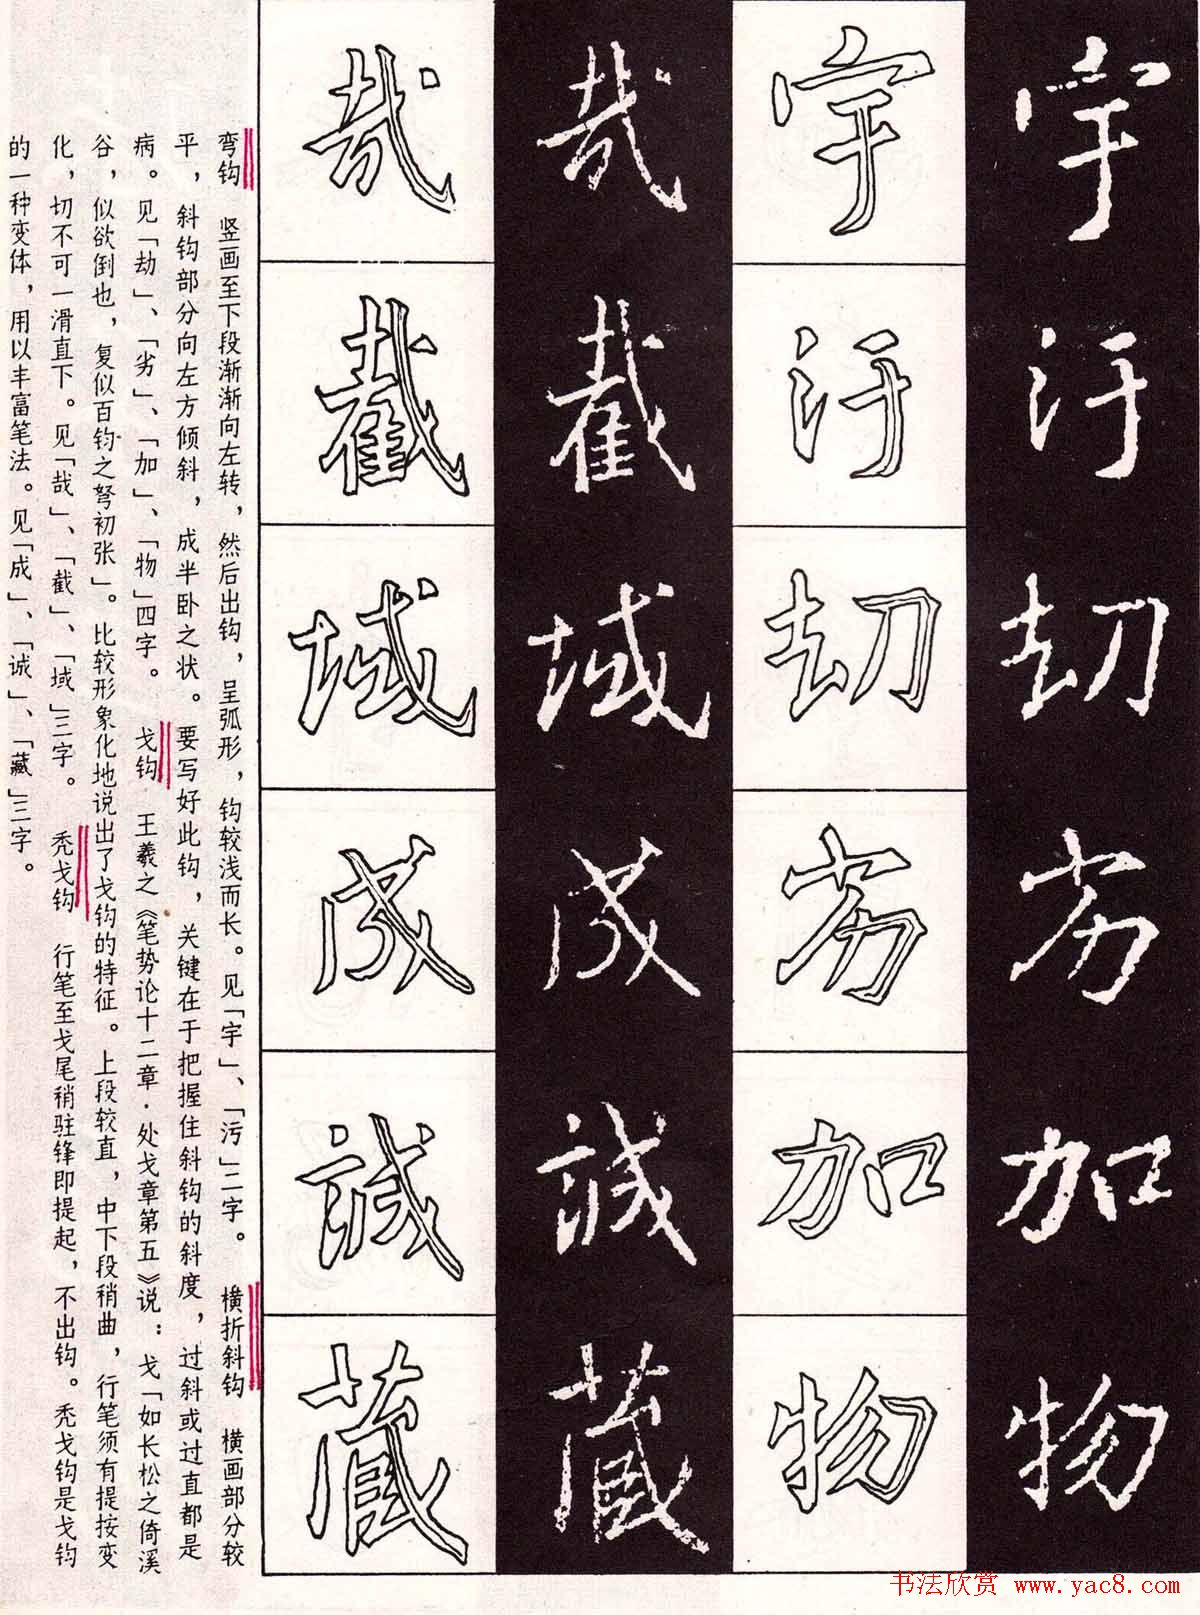 宇
汙
劫
劣
加
物
宇
汙
劫
劣
加
物
哉
截
域
成
誠
藏
哉
截
域
成
誠
藏
弯钩 竖画至下段渐渐向左转，然后出钩，呈弧形，钩较浅而长。见「宇」、「污」二字。 横折斜钩 横画部分较
平，斜钩部分向左方倾斜，成半卧之状。要写好此钩，关键在于把握住斜钩的斜度，过斜或过直都是
病。见「劫」、「劣」、「加」、「物」四字。 戈钩 王羲之《笔势论十二章·处戈章第五》说：戈「如长松之倚溪
谷，似欲倒也，复似百钧之弩初张」。比较形象化地说出了戈钩的特征。上段较直，中下段稍曲，行笔须有提按变
化，切不可一滑直下。见「哉」、「截」、「域」三字。 秃戈钩 行笔至戈尾稍驻锋即提起，不出钩。秃戈钩是戈钩
的一种变体，用以丰富笔法。见「成」、「诚」、「藏」三字。
书法欣赏 www.yac8.com